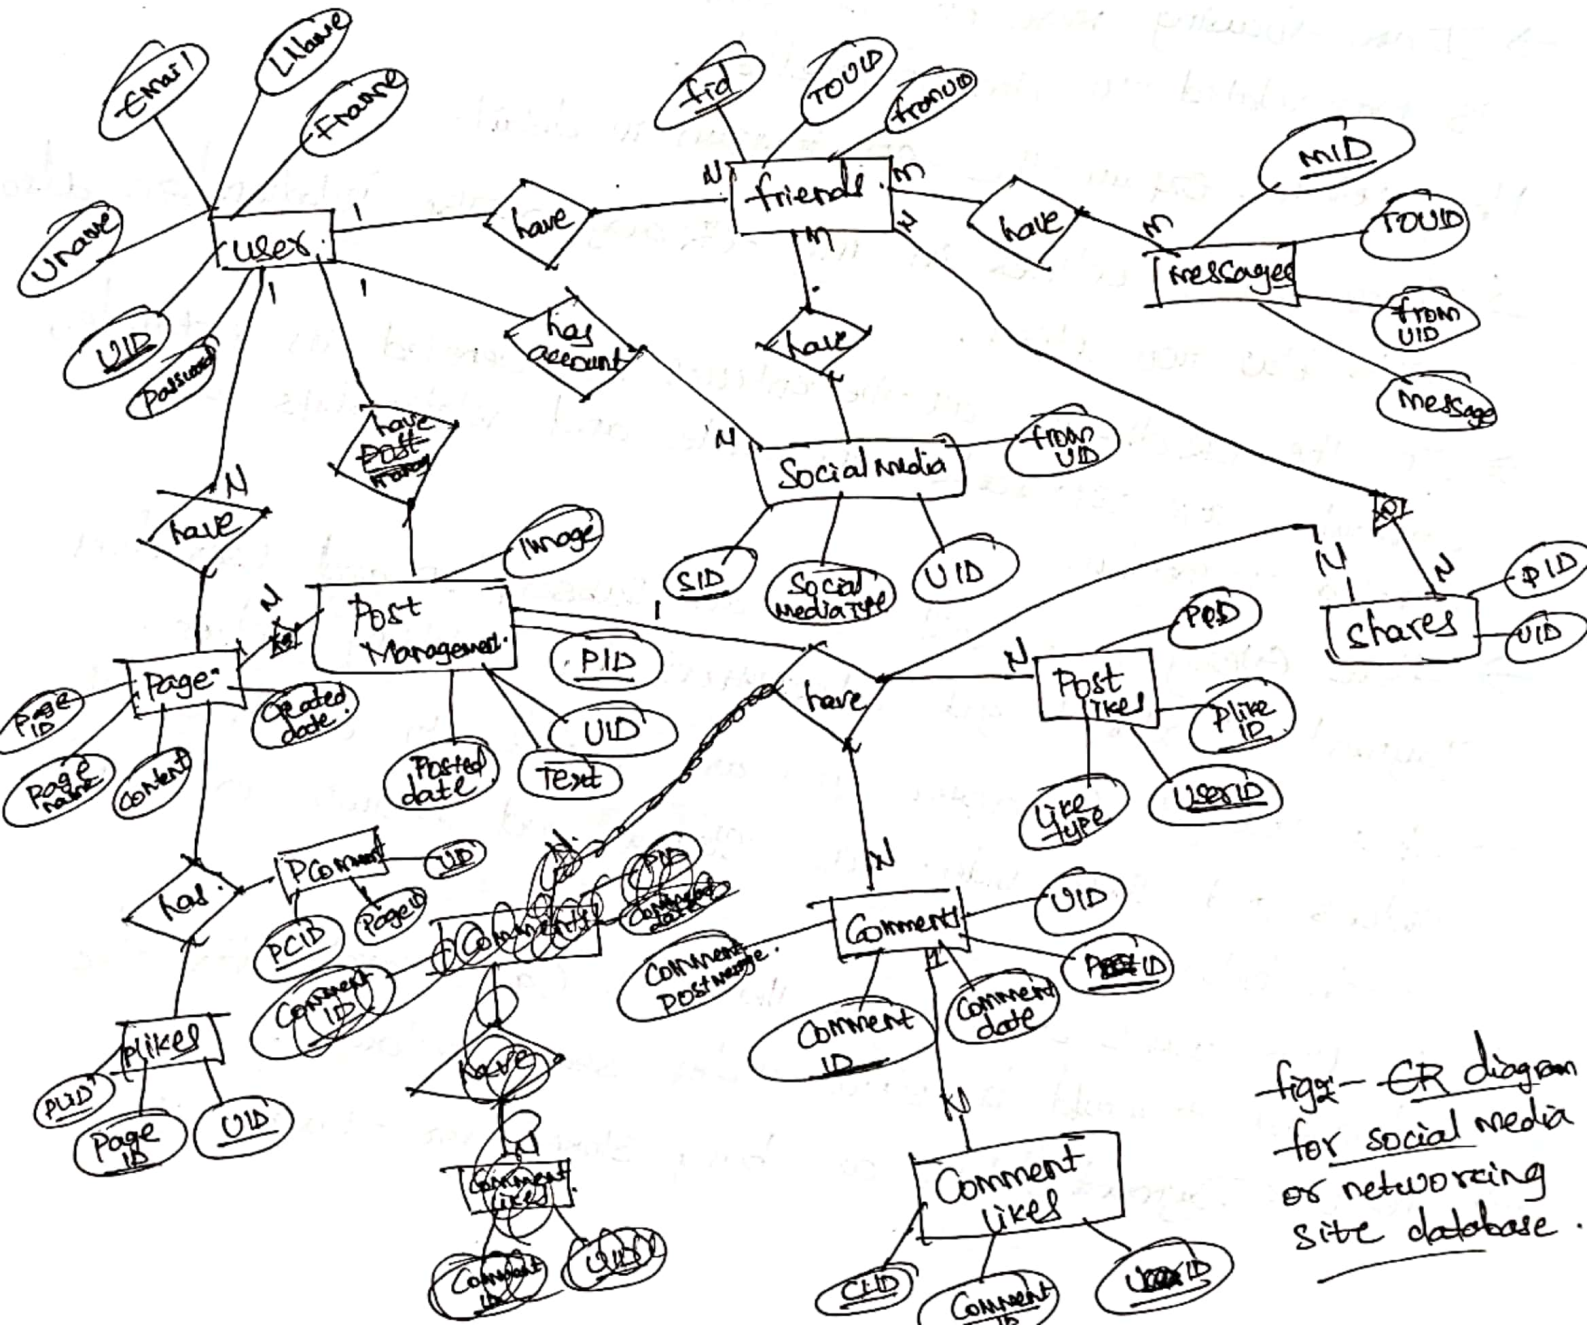 Email
LName
Fname
Uname
UID
Password
user
1
1
1
have
N
friends
fid
TOUID
fromUID
M
N
M
have
M
messages
MID
TOUID
from
UID
message
has
account
N
have
N
Social Media
from
UID
SID
Social
Media Type
UID
N
have
have
Post
Image
Post
Management
N
PID
UID
Text
Posted
date
Page
Page
ID
Page
name
Content
Created
date
1
have
N
N
N
shares
PID
UID
Post
likes
Plike
ID
UserID
Like
type
has
PComment
UID
PageID
PCID
Plikes
PLID
Page
ID
UID
Comments
PID
Comment
ID
have
Comment
likes
Comment
ID
UID
N
Comment
UID
ID
Comment
date
Comment
ID
Comment
1
N
Comment
likes
CLID
Comment
ID
ID
ER diagram
for social media
or networking
site database.